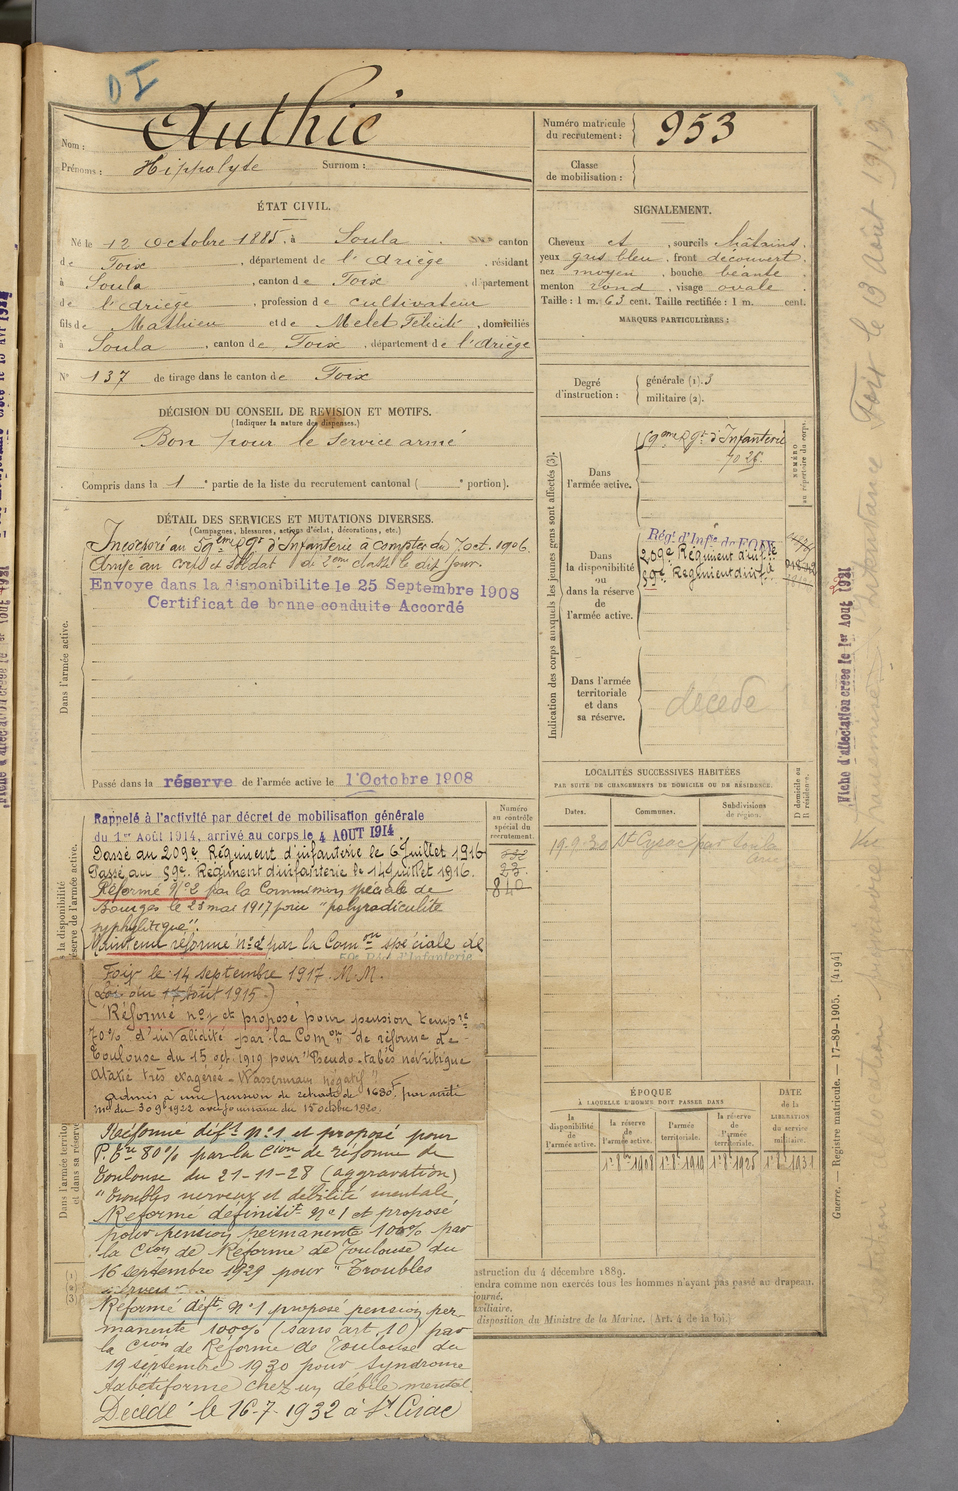 DI
Nom : Authié
Prénoms : Hippolyte Surnom :
Numéro matricule du recrutement : 953
Classe de mobilisation :
ÉTAT CIVIL.
Né le 12 Octobre 1885, à Soula, canton
de Foix, département de l'Ariège, résidant
à Soula, canton de Foix, département
de l'Ariège, profession de cultivateur
fils de Mathieu et de Melet Félicité, domiciliés
à Soula, canton de Foix, département de l'Ariège
N° 137 de tirage dans le canton de Foix
SIGNALEMENT.
Cheveux et, sourcils châtains,
yeux gris bleu, front découvert,
nez moyen, bouche béante,
menton rond, visage ovale.
Taille : 1 m. 63 cent. Taille rectifiée : 1 m. cent.
MARQUES PARTICULIÈRES :
Degré d'instruction : générale (1). 3
militaire (2).
DÉCISION DU CONSEIL DE REVISION ET MOTIFS.
(Indiquer la nature des dispenses.)
Bon pour le service armé
Compris dans la 1 e partie de la liste du recrutement cantonal ( e portion).
DÉTAIL DES SERVICES ET MUTATIONS DIVERSES.
(Campagnes, blessures, actions d'éclat, décorations, etc.)
Incorporé au 59eme Rgt d'Infanterie à compter du 7 oct. 1906.
Arrivé au corps et soldat de 2eme classe le dit jour.
Envoye dans la disponibilite le 25 Septembre 1908
Certificat de bonne conduite Accordé
Dans l'armée active.
Passé dans la réserve de l'armée active le 1 Octobre 1908
Indication des corps auxquels les jeunes gens sont affectés (3).
NUMÉRO au répertoire du corps.
Dans l'armée active.
59eme Rgt d'Infanterie
7025
Dans la disponibilité ou dans la réserve de l'armée active.
Régt d'Infie de FOIX
209e Régiment d'infie
59e Régiment d'infie
Dans l'armée territoriale et dans sa réserve.
décédé
LOCALITÉS SUCCESSIVES HABITÉES
PAR SUITE DE CHANGEMENTS DE DOMICILE OU DE RÉSIDENCE.
Dates. Communes. Subdivisions de région.
D domicile ou R résidence.
19.9.30 St Cyrac par Soula
Numéro au contrôle spécial du recrutement.
840
Rappelé à l'activité par décret de mobilisation générale
du 1er Août 1914, arrivé au corps le 4 AOUT 1914.
Passé au 209e Régiment d'infanterie le 6 Juillet 1916
Passé au 59e Régiment d'infanterie le 14 Juillet 1916.
Réformé N°2 par la Commission spéciale de
Bourges le 23 mai 1917 pour "polyradiculite
syphilitique".
Maintenu réformé n°2 par la Comon spéciale de
Foix le 14 septembre 1917. M.M.
(Loi du 17 Août 1915.)
Réformé n°1 et proposé pour pension tempre
70% d'invalidité par la Comon de réforme de
Toulouse du 15 oct. 1919 pour "Pseudo-tabès névritique
Ataxie très exagérée - Wassermann négatif"
admis à une pension de retraite de 1680 F par arrêté
mel du 30 9 1922 avec jouissance du 15 octobre 1920.
Réformé déft N°1 et proposé pour
P. Tre 80% par la Cion de réforme de
Toulouse du 21-11-28 (aggravation)
"Troubles nerveux et débilité mentale,
Réformé définitift N°1 et proposé
pour pension permanente 100% par
la Cion de Réforme de Toulouse du
16 septembre 1929 pour "Troubles
nerveux"
Réformé déft N°1 proposé pension per-
manente 100% (sans art. 10) par
la Cion de Réforme de Toulouse du
19 septembre 1930 pour syndrome
tabétiforme chez un débile mental.
Décédé le 16-7-1932 à St Cirac
ÉPOQUE
À LAQUELLE L'HOMME DOIT PASSER DANS
la disponibilité de l'armée active.
la réserve de l'armée active.
l'armée territoriale.
la réserve de l'armée territoriale.
DATE de la LIBÉRATION du service militaire.
1er 8bre 1908
nstruction du 4 décembre 1889.
endra comme non exercés tous les hommes n'ayant pas passé au drapeau.
journé.
uxiliaire.
disposition du Ministre de la Marine. (Art. 4 de la loi.)
Guerre. — Registre matricule. — 17-89-1905. [4194]
Fiche d'affectation créée le 1er Aout 1921
Foix le 13 août 1919